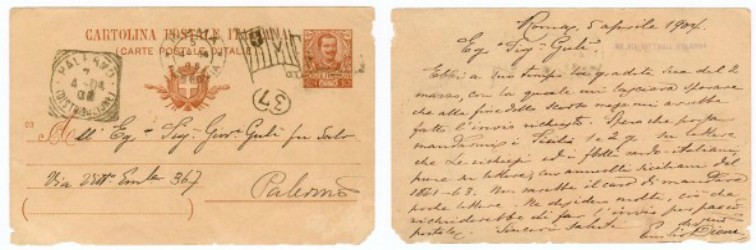 CARTOLINA POSTALE ITALIANA
(CARTE POSTALE D'ITALIE)
PALERMO
7
4-04
DISTRIBUZIONE
37
All' Eg° Sig. Giov. Gulì fu Salv.
Via Vitt. Em. 367
Palermo
Roma, 5 aprile 1904
Eg. Sig. Gulì.
Ebbi a suo tempo la gradita sua del 2
marzo, con la quale mi lasciava sperare
che alla fine dello scorso mese mi avrebbe
fatto l'invio richiesto. Spero che possa
mandarmi i Sicilia 1 e 2 g. su lettere
che Le richiesi ed i
pure su lettere, con annulli siciliani del
1861-63. Non sarebbe il caso di mandarmi
poche lettere. Ne desidero molte, ciò che
richiederebbe di far l'invio per pacco
postale. Sinceri saluti
Emilio Diena